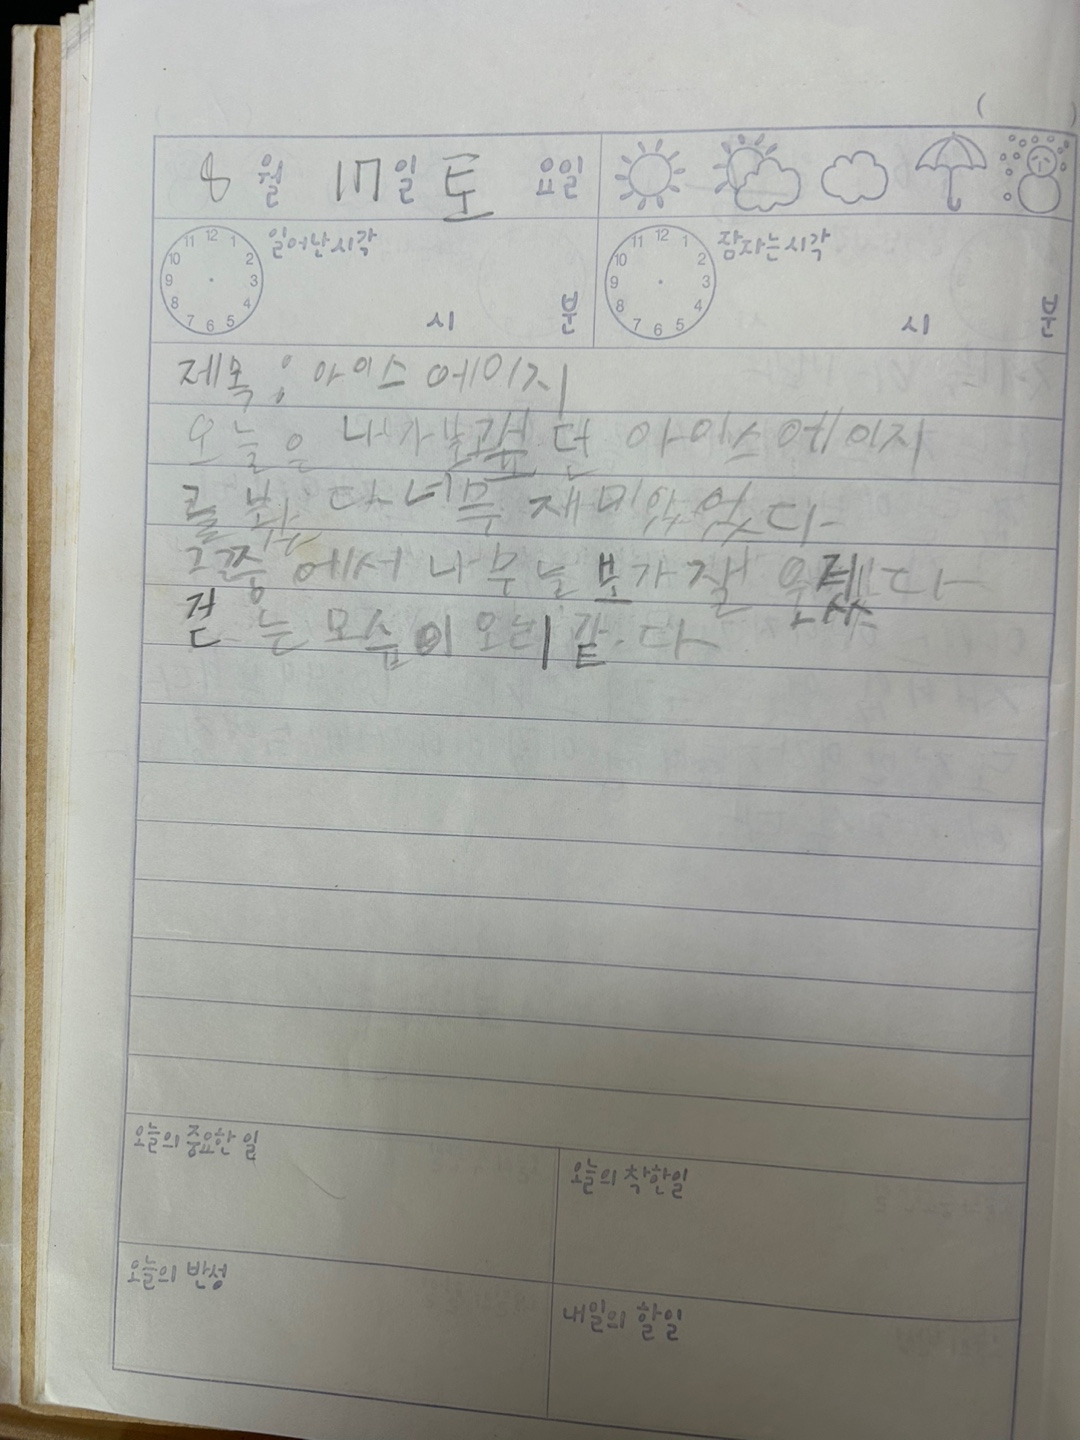 8월 17일 토 요일
일어난시각
11 12 1
10 2
9 3
8 4
7 6 5
시 분
잠자는시각
11 12 1
10 2
9 3
8 4
7 6 5
시 분
제목 : 아이스에이지
오늘은 나가 던 아이스에이지
를 봤다 너무 재미있었다
그쭝에서 나무늘보가 잘 다
걷는 모습이 오리 같다
오늘의 중요한 일
오늘의 착한일
오늘의 반성
내일의 할일